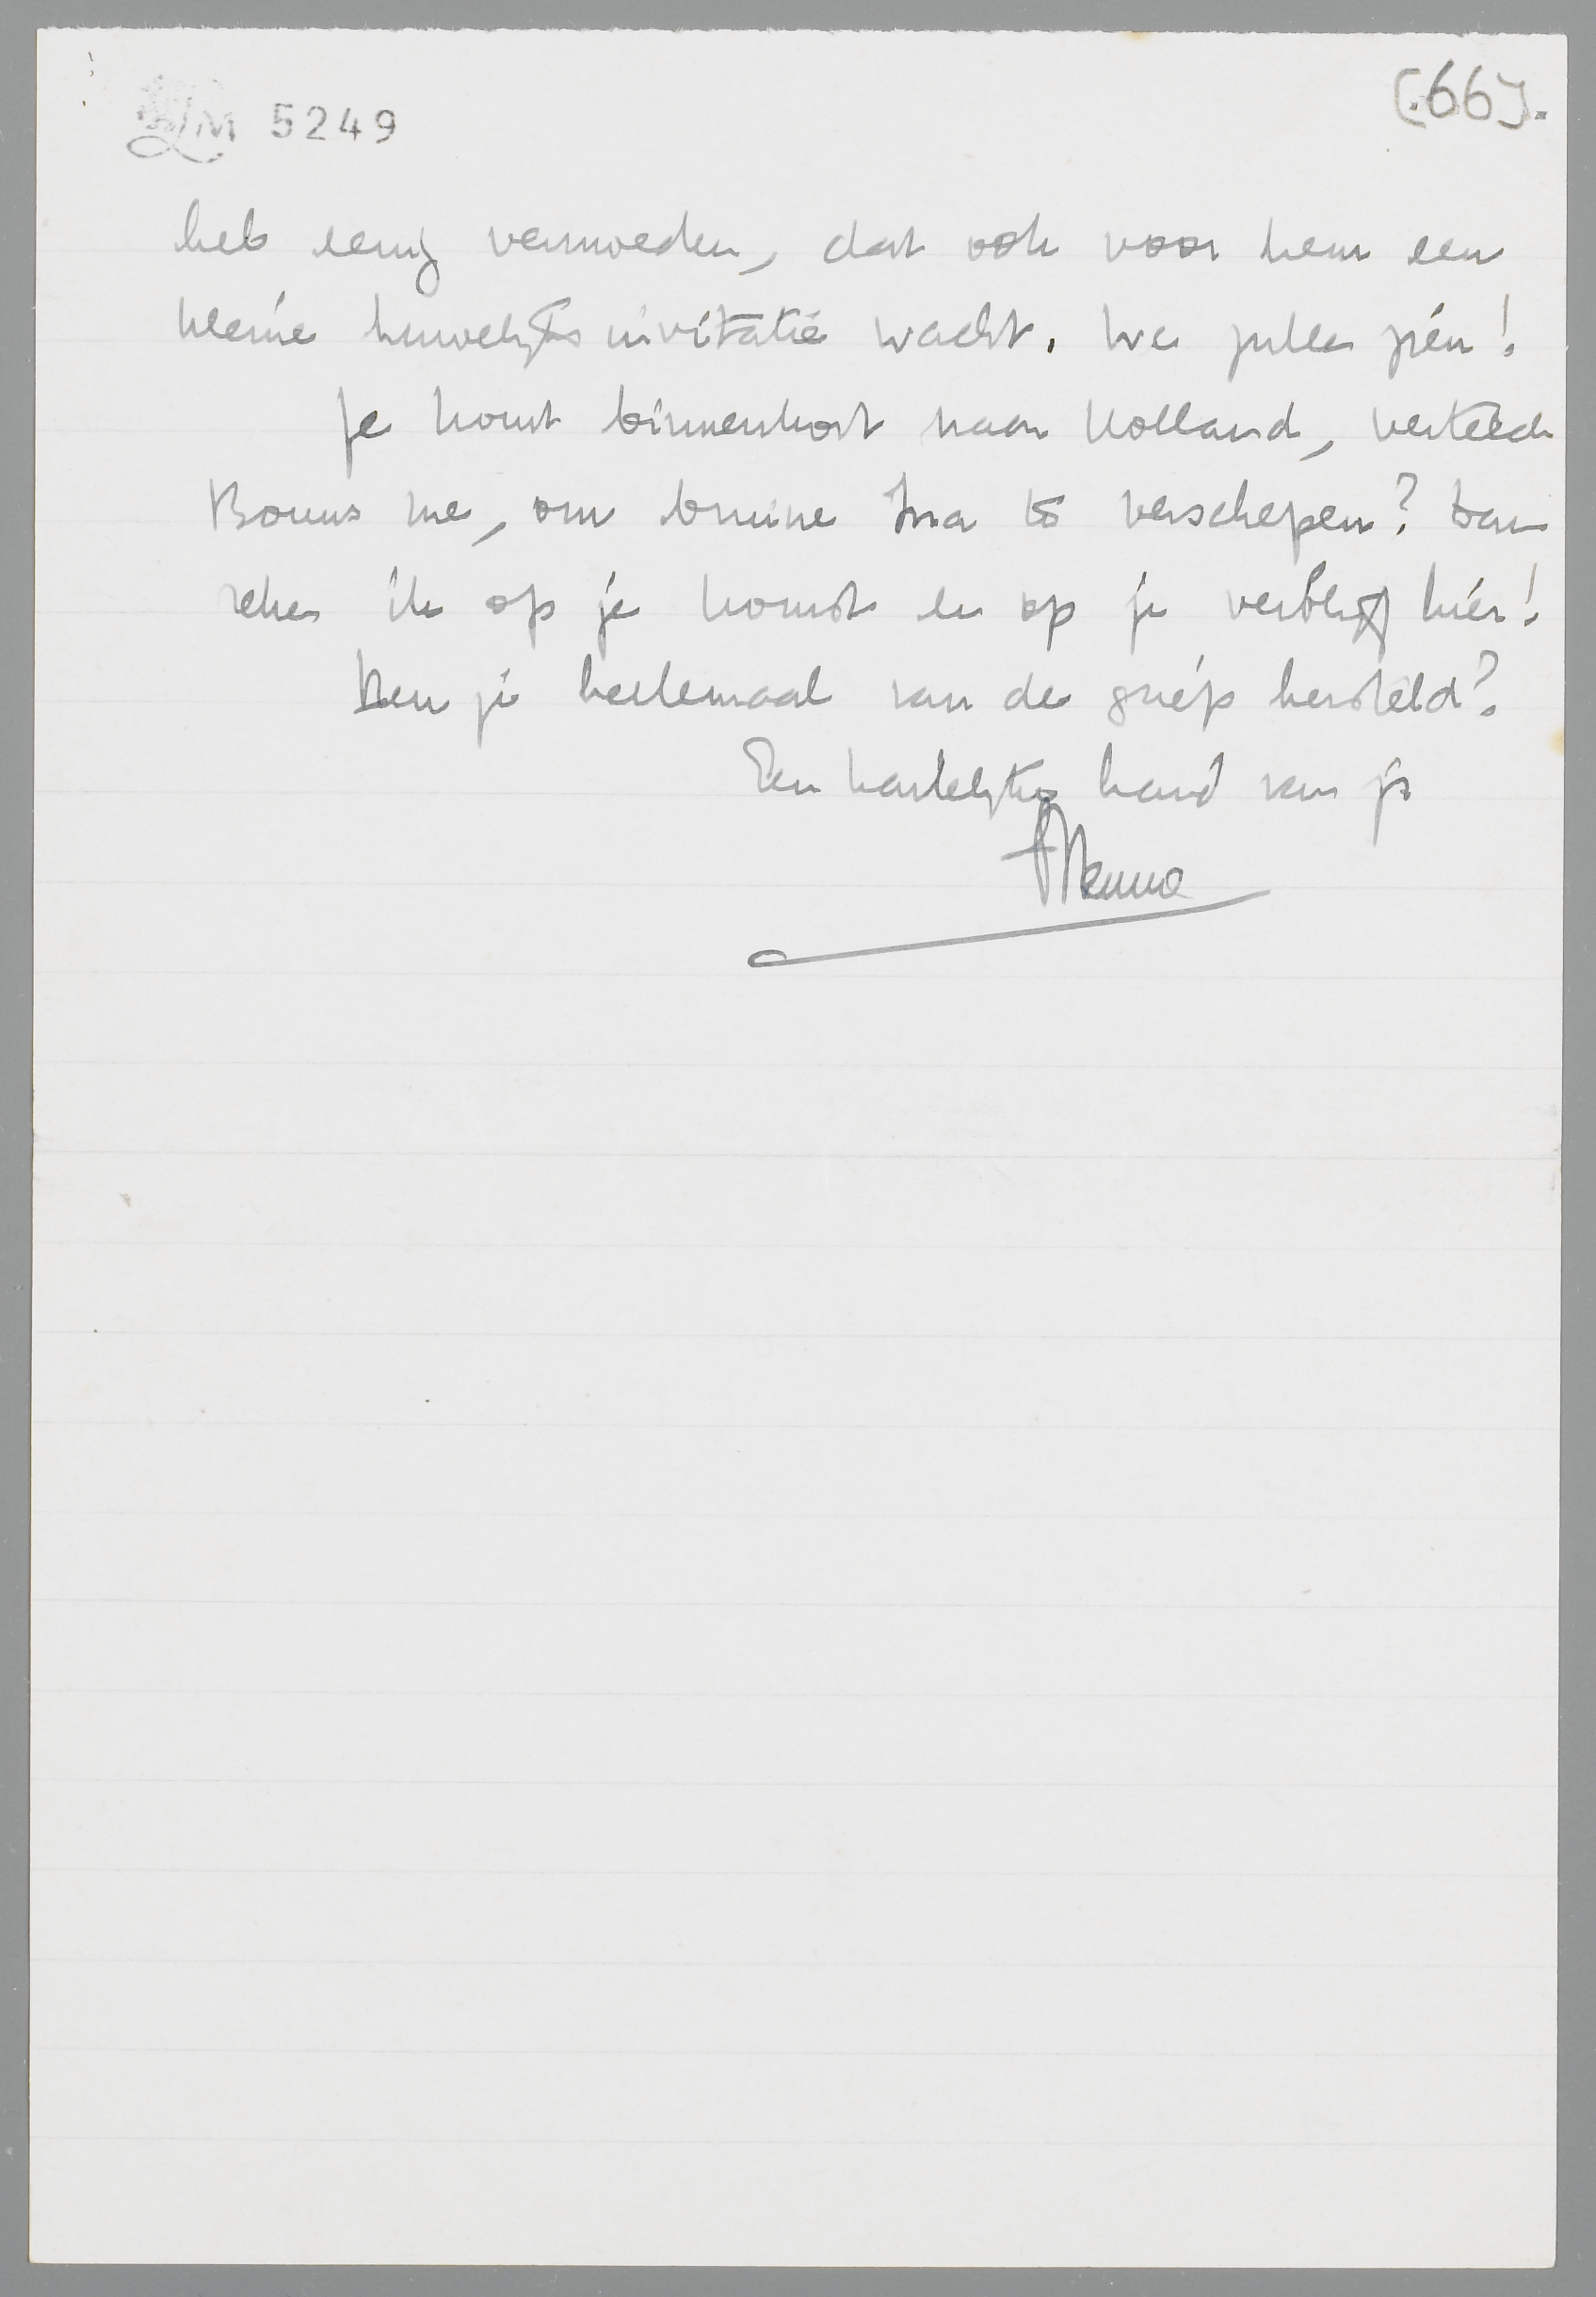 LM 5249
(66).
heb eenig vermoeden, dat ook voor hem een
kleine huwelijksinvitatie wacht. We zullen zien!
Je komt binnenkort naar Holland, vertelde
Bouws me, om bruine Ina te verschepen? Dan
reken ik op je komst en op je verblijf hier!
Ben je heelemaal van de griep hersteld?
Een hartelijke hand van je
Menno